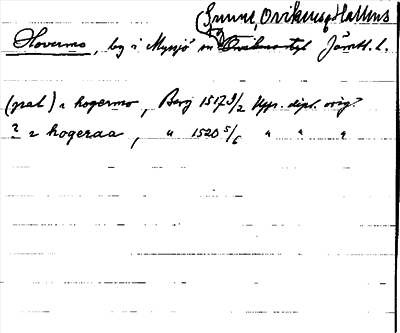 (Sunne, Oviken o Hallens
Hovermo, by i Myssjö sn Ovikens tgl Jämtl. l.
(prat) i hogermo, Berg 1517 3/2 Upps. dipl. orig.
? i hogeraa, " 1520 5/6 " " "